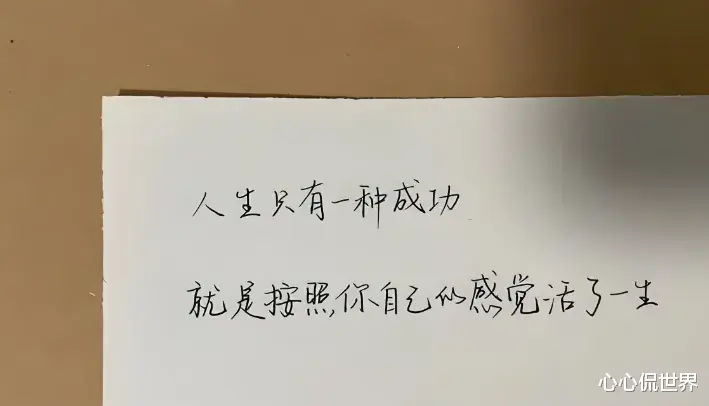 人生只有一种成功
就是按照你自己的感觉活了一生
心心侃世界